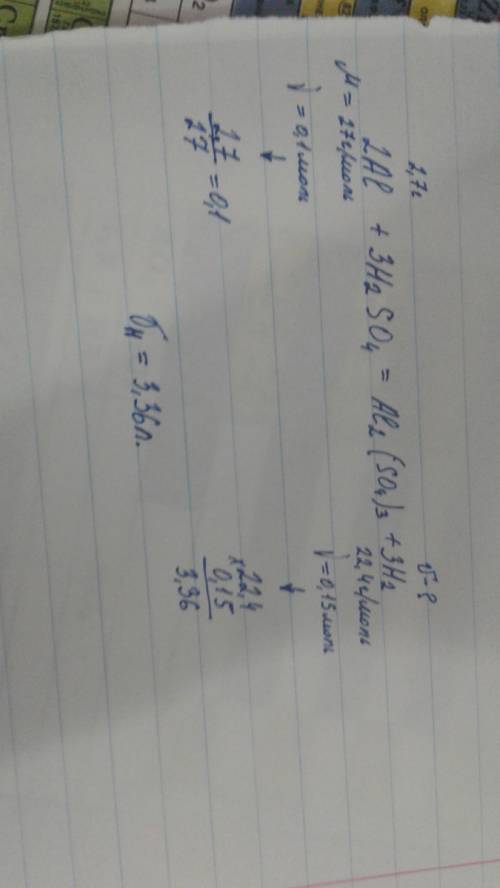 2,7г V-?
2Al + 3H₂SO₄ = Al₂(SO₄)₃ + 3H₂
M = 27г/моль 22,4г/моль
V = 0,1моль V=0,15моль
↓ ↓
2,7/27 = 0,1
x22,4
0,15
3,36
Vн = 3,36л.